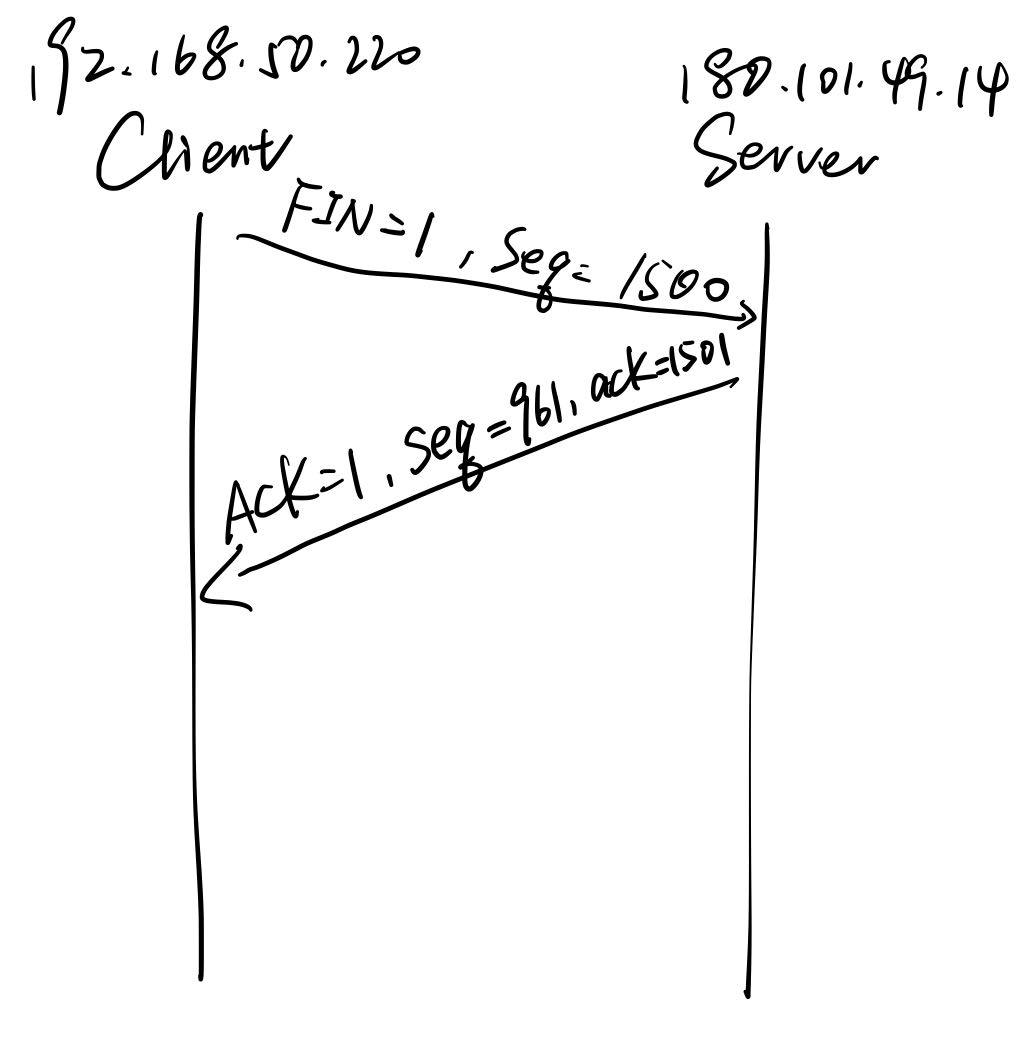 192.168.50.220
180.101.49.14
Client
Server
FIN=1, Seq=1500
ACK=1, seq=961, ack=1501